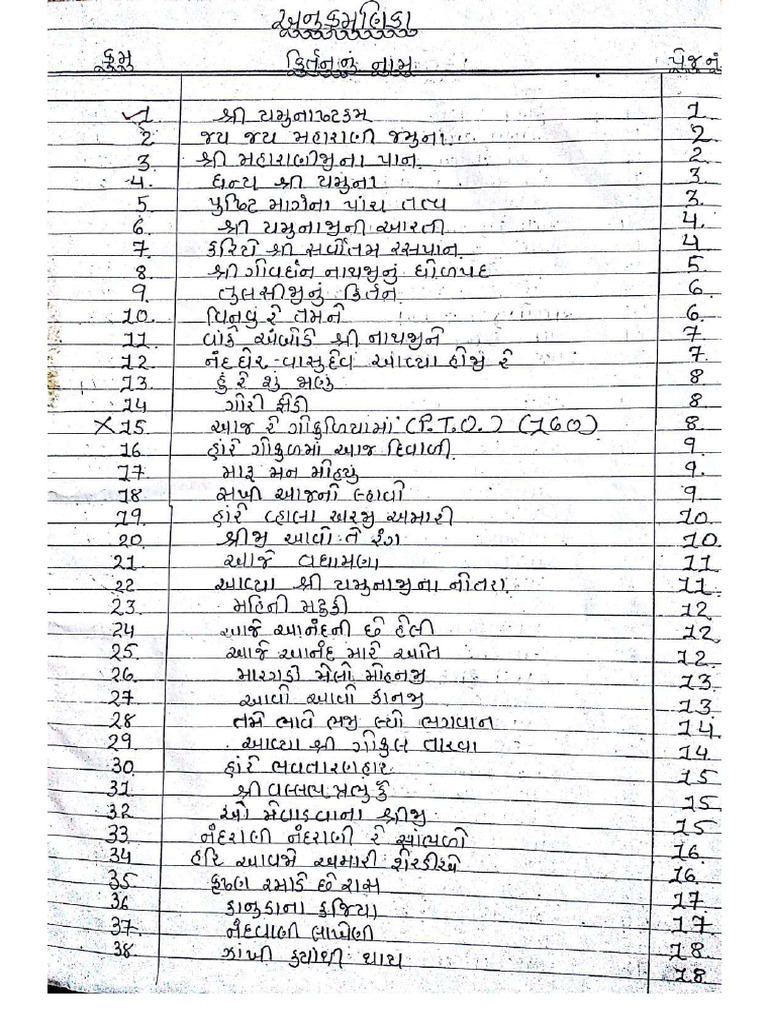 અનુક્રમણિકા
ક્રમ કિર્તનનું નામ પેજ નં
1 શ્રી યમુનાષ્ટકમ 1
2 જય જય મહારાણી જમુના 2
3. શ્રી મહારાણીજીના પાન 2
4. ધન્ય શ્રી યમુના 3
5 પુષ્ટિ માર્ગના પાંચ તત્વ 3.
6. શ્રી યમુનાજીની આરતી 4.
7. કરિયે શ્રી સર્વોતમ રસપાન 4
8. શ્રી ગોવર્ધન નાથજીનું ધોળપદ 5
9. તુલસીજીનું કિર્તન 6
10. વિનવું રે તમને 6.
11. વાંકે અંબોડે શ્રી નાથજીને 7
12. નંદ ઘેર-વાસુદેવ આવ્યા હોજી રે 7.
13. હું રે શું ભણું 8
14 ગોરી 8
X 15 આજ રે ગોકુળિયામાં (P.T.O.) (160) 8.
16 હાંરે ગોકુળમાં આજ દિવાળી 9.
17. મારૂ મન મોહ્યું 9.
18 સખી આજનો લ્હાવો 9
19. હાંરે વ્હાલા અરજી અમારી 10.
20 શ્રીજી આવો તે રંગ 10.
21. આજે વધામણા 11
22 આવ્યા શ્રી યમુનાજીના નોતરા 11.
23. મહિની મટુકી 12
24 આજે આનંદની છે હેલી 12
25. આજે આનંદ મારે અતિ 12.
26. મારગડો મેલો મોહનજી 13
27 આવો આવો કાનજી 13
28 તમે ભાવે ભજી લ્યો ભગવાન 14
29. આવ્યા શ્રી ગોકુલ તારવા 14
30 હાંરે ભવતારણહાર 15
31. શ્રી વલ્લભ પ્રભુ કુ 15
32 ઓ મેવાડવાના શ્રીજી 15
33 નંદરાણી નંદરાણી રે સાંભળો 16.
34 હરિ આવજો અમારી શેરડીએ 16
35 કૃષ્ણ રમાડે છે રાસ 17
36 કાનુડાના કજિયા 17
37. નંદવાણી 18
38 ઝાંખી ક્યાંથી થાય 18